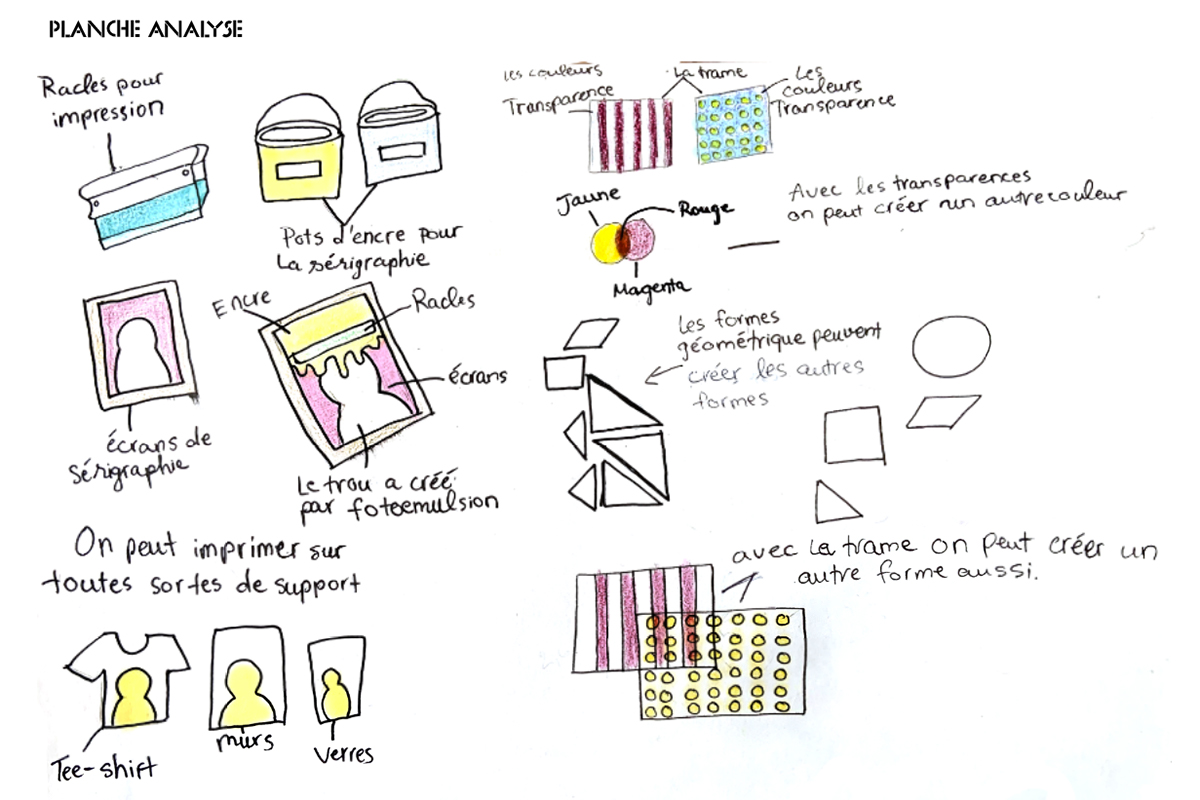 PLANCHE ANALYSE
Racles pour
impression
Pots d'encre pour
La sérigraphie
Encre
Racles
écrans
écrans de
sérigraphie
Le trou a créé
par foteemulsion
On peut imprimer sur
toutes sortes de support
Tee-shift
murs
verres
Les couleurs
Transparence
La trame
Les
couleurs
Transparence
Jaune
Rouge
Magenta
Avec les transparences
on peut créer un autre couleur
Les formes
géométrique peuvent
créer les autres
formes
avec La trame on peut créer un
autre forme aussi.